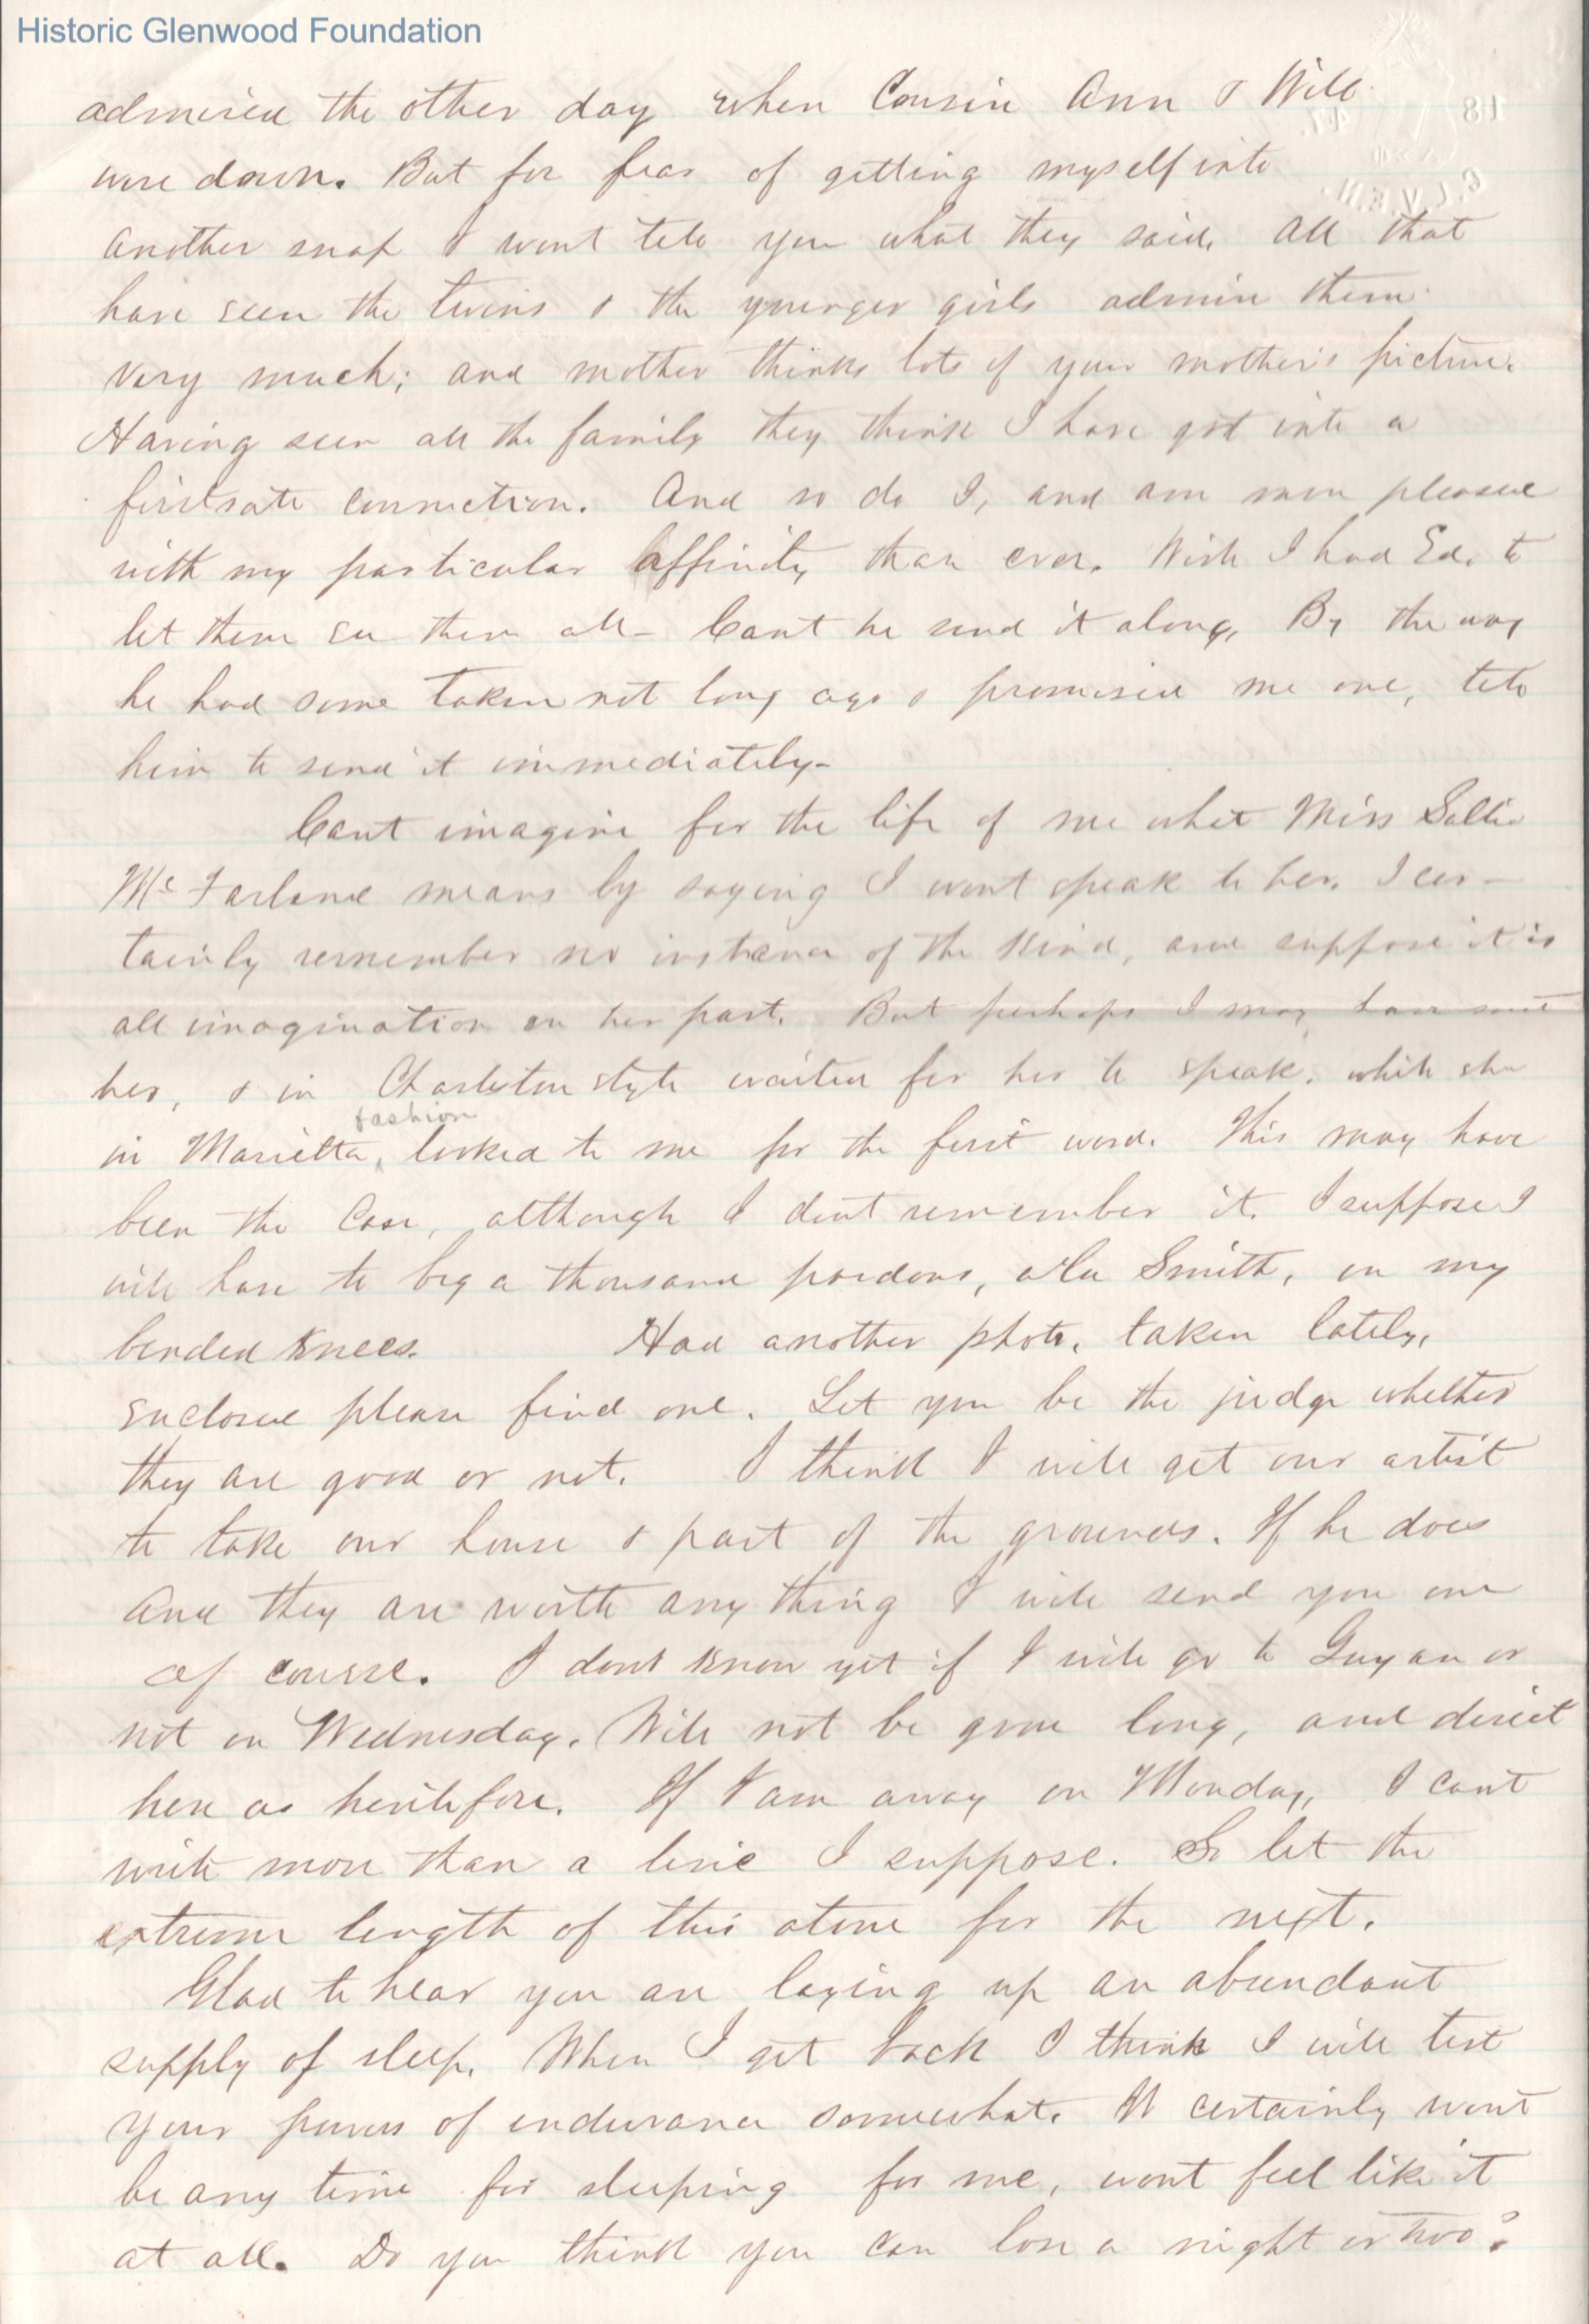 Historic Glenwood Foundation
admired the other day when Cousin Ann & Will
were down. But for fear of getting myself into
another snap I wont tell you what they said. All that
have seen the twins & the younger girls admire them
very much; and mother thinks lots of your mother's picture.
Having seen all the family they think I have got into a
firstrate connection. And so do I, and am more pleased
with my particular affinity than ever. Wish I had Ed. to
let them see them all - Cant he send it along. By the way
he had some taken not long ago & promised me one, tell
him to send it immediately -
Cant imagine for the life of me what Miss Sallie
McFarland means by saying I wont speak to her. I cer-
tainly remember no instance of the kind, and suppose it is
all imagination on her part. But perhaps I may have met
her, & in Charleston style waited for her to speak, while she
fashion
in Marietta, looked to me for the first word. This may have
been the case, although I dont remember it. I suppose I
will have to beg a thousand pardons, a'la Smith, on my
bended knees. Had another photo. taken lately,
enclosed please find one. Let you be the judge whether
they are good or not. I think I will get our artist
to take our house & part of the grounds. If he does
and they are worth any thing I will send you one
of course. I dont know yet if I will go to Guyan or
not on Wednesday. Will not be gone long, and direct
here as heretofore. If I am away on Monday, I cant
write more than a line I suppose. So let the
extreme length of this atone for the next.
Glad to hear you are laying up an abundant
supply of sleep. When I get back I think I will test
your powers of endurance somewhat. It certainly wont
be any time for sleeping for me, wont feel like it
at all. Do you think you can lose a night or two?